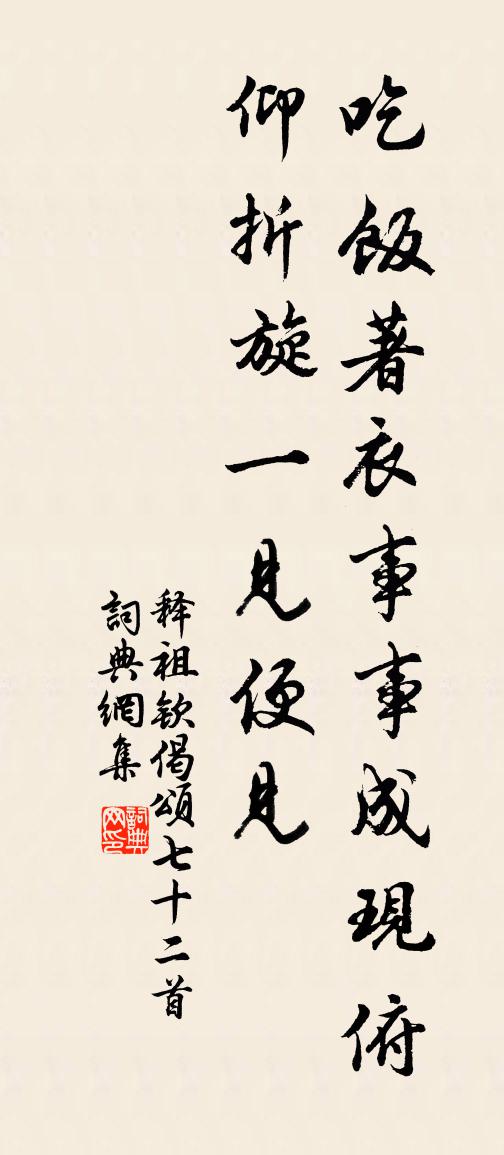 吃飯著衣事事成現俯
仰折旋一見便見
释祖欽偈頌七十二首
詞典網集
詞典網印